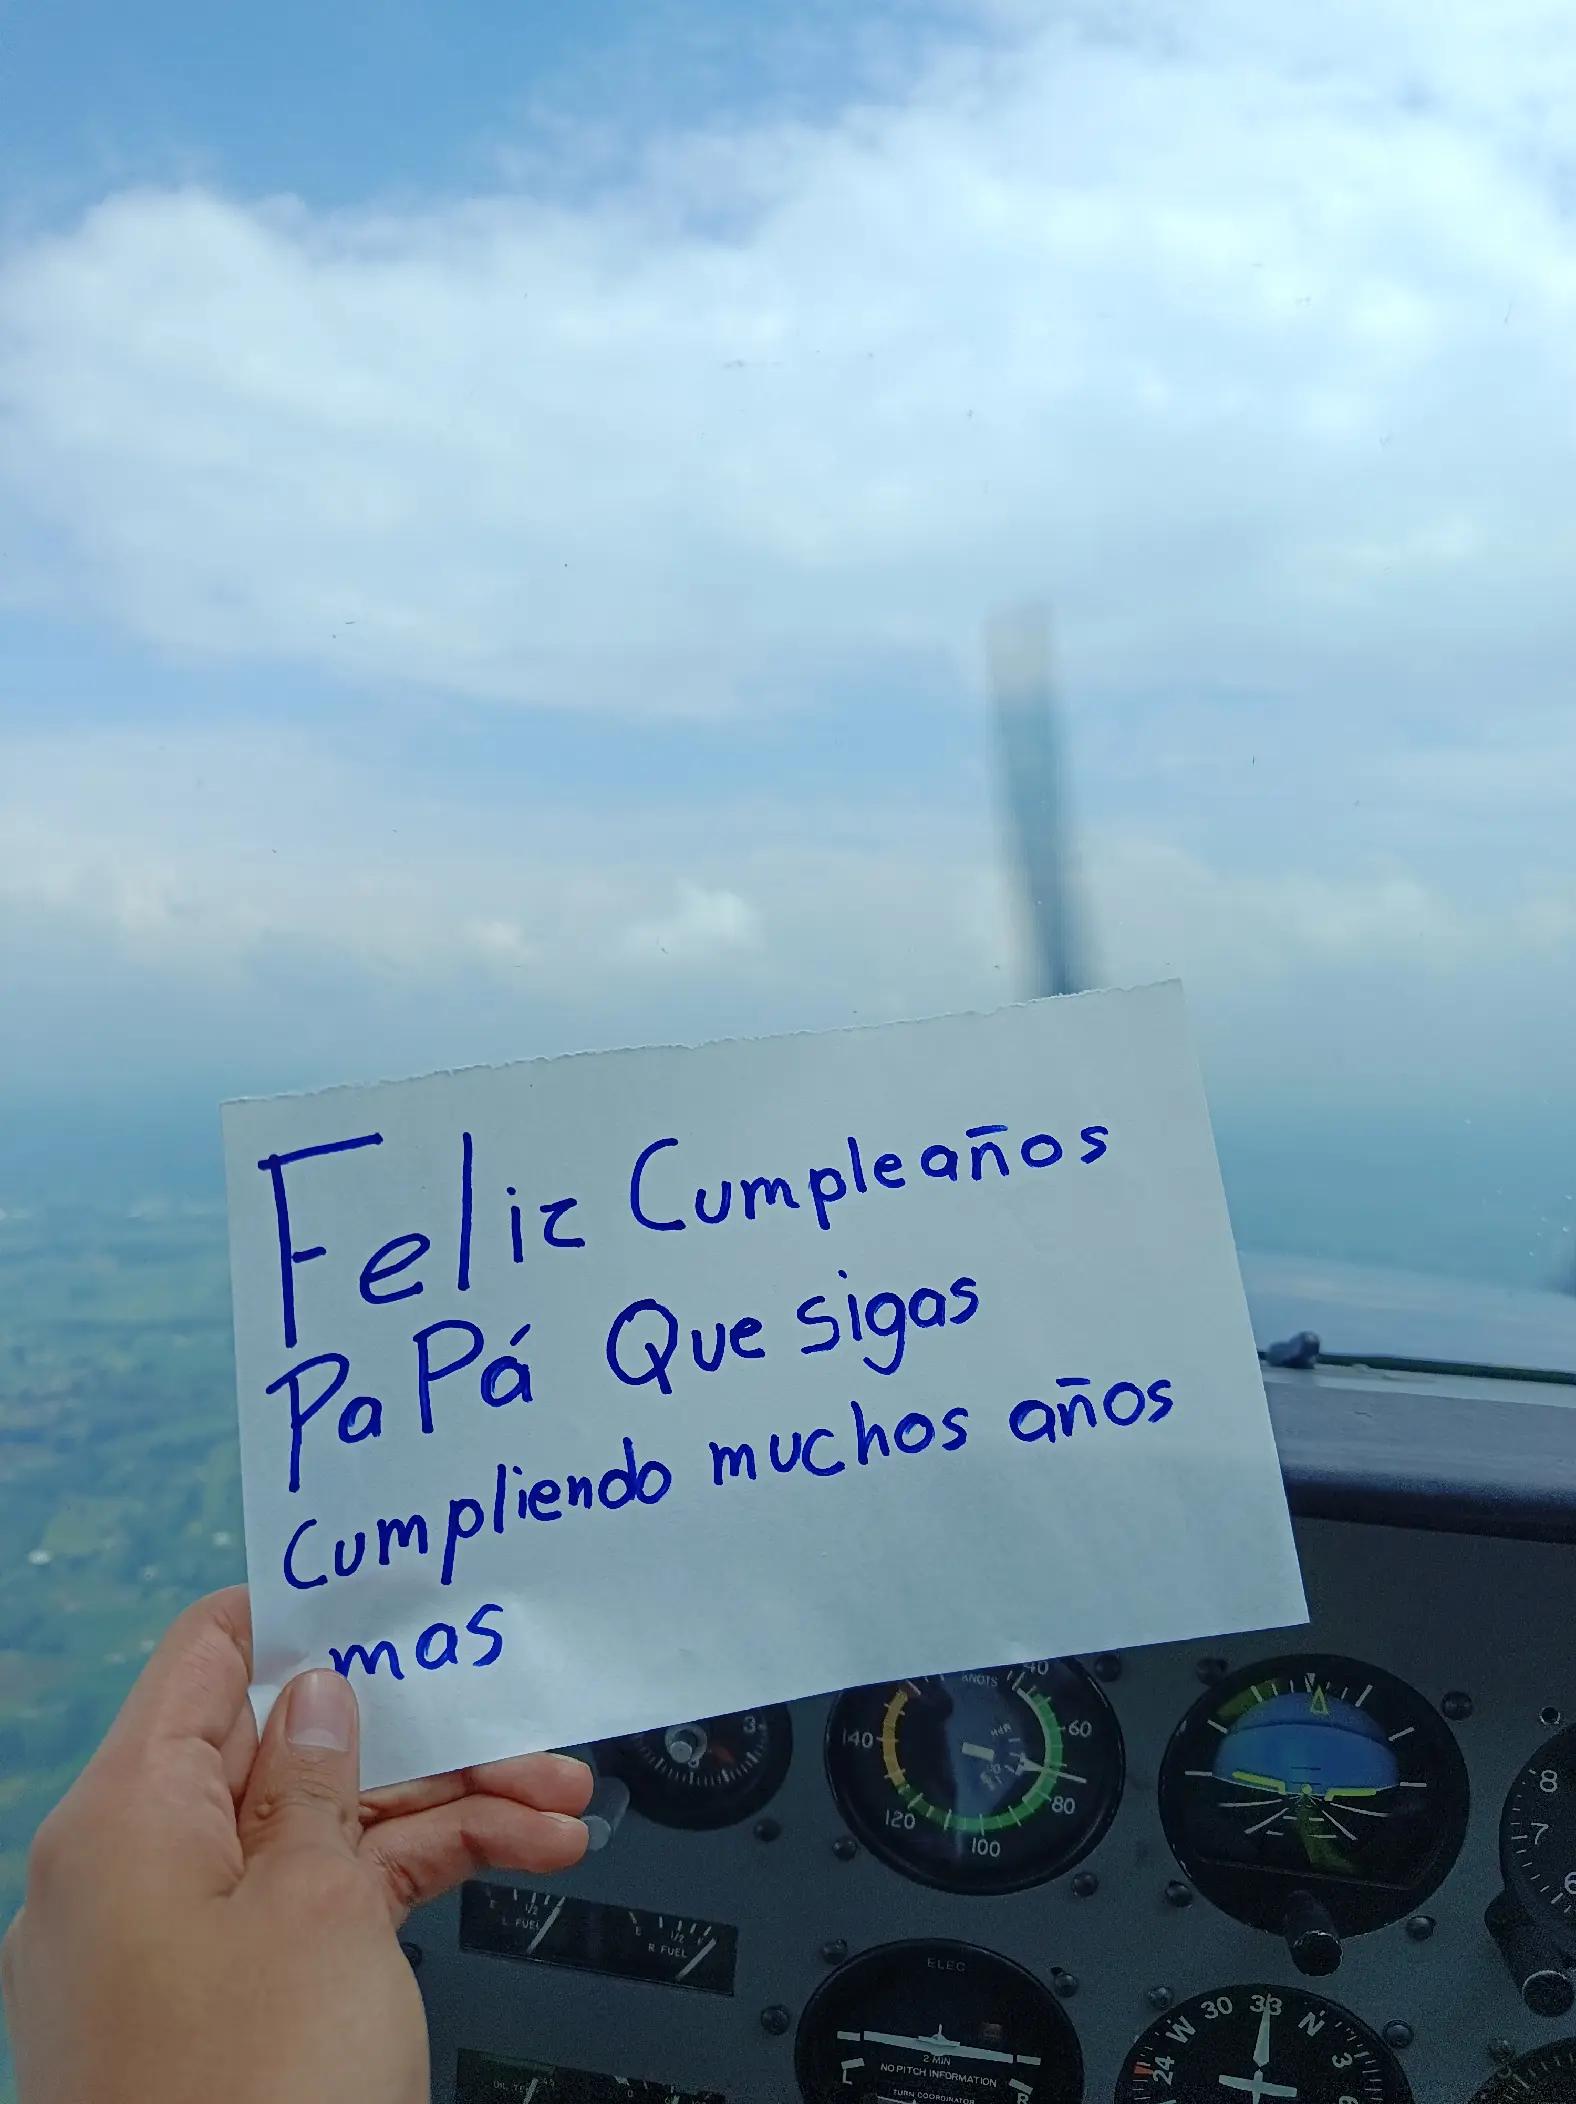 Feliz Cumpleaños
PaPá Que sigas
Cumpliendo muchos años
mas
3
KNOTS
40
60
80
100
120
140
MPH
8
7
6
E 1/2
L FUEL
E 1/2
R FUEL
ELEC
2 MIN
L R
NO PITCH INFORMATION
TURN COORDINATOR
24 W 30 33 N 3 6